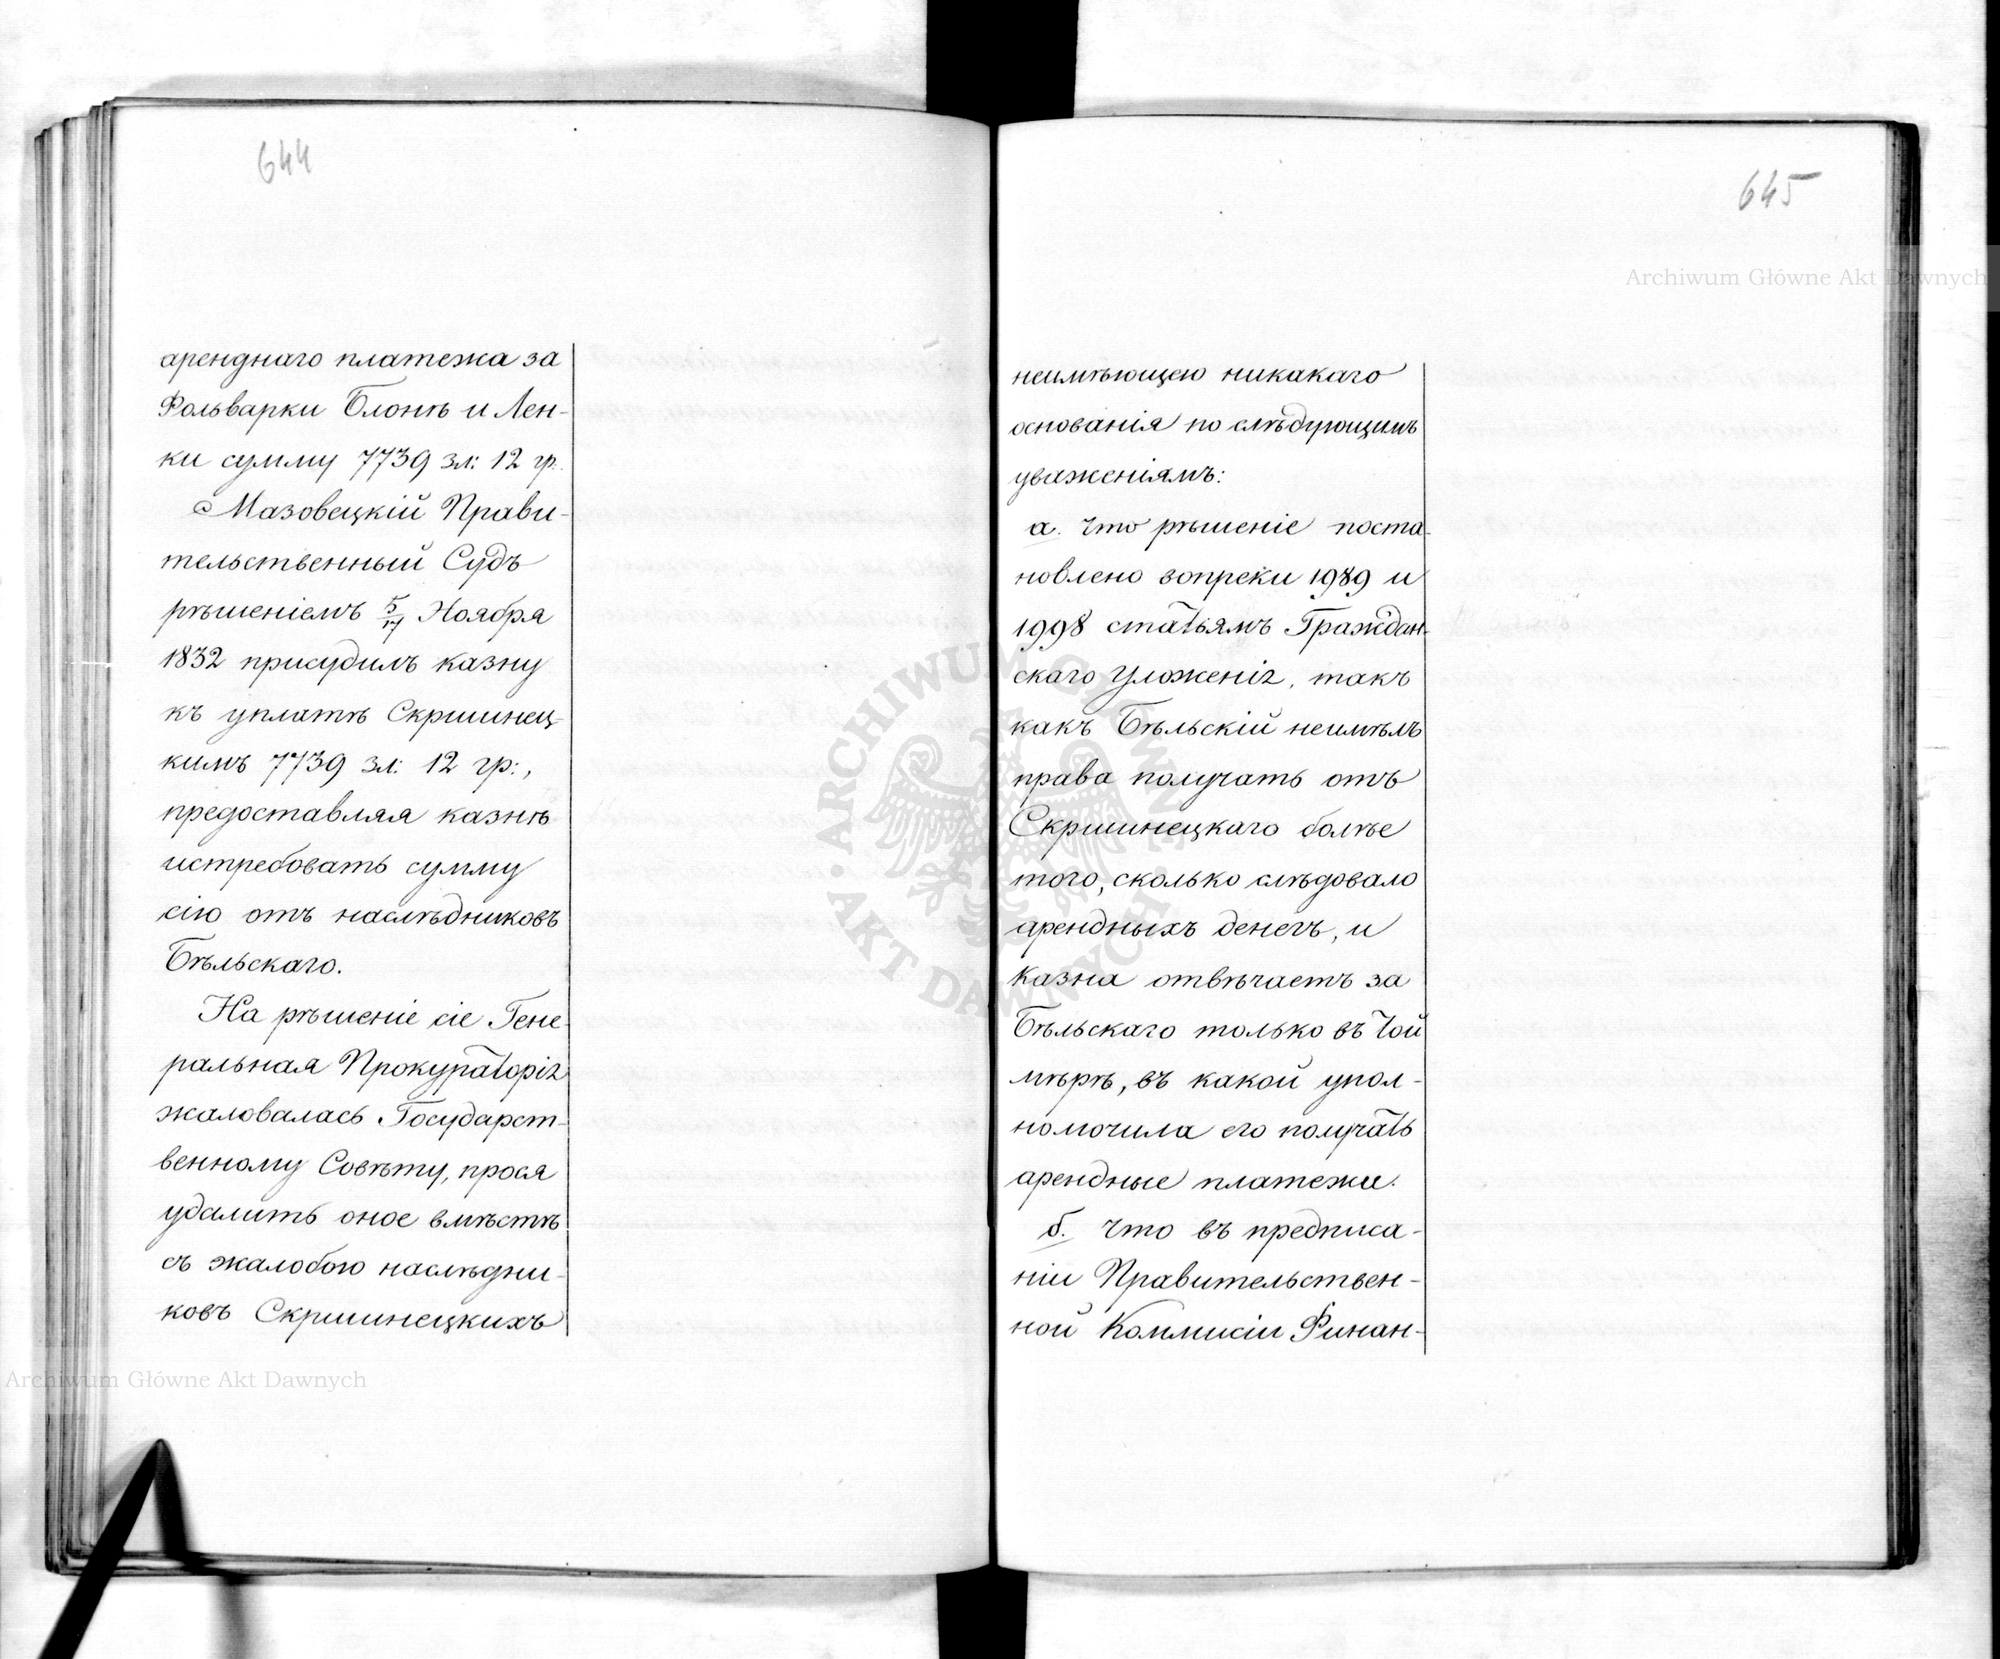 644
аренднаго платежа за
Фольварки Блонѣ и Лен-
ки сумму 7739 зл: 12 гр.
Мазовецкій Прави-
тельственный Судъ
рѣшеніемъ 5/17 Ноября
1832 присудилъ казну
къ уплатѣ Скршинец-
кимъ 7739 зл: 12 гр:,
предоставляя казнѣ
истребовать сумму
сію отъ наслѣдниковъ
Бѣльскаго.
На рѣшеніе сіе Гене-
ральная Прокураторія
жаловалась Государст-
венному Совѣту, прося
удалить оное вмѣстѣ
съ жалобою наслѣдни-
ковъ Скршинецкихъ
645
неимѣющею никакаго
основанія по слѣдующимъ
уваженіямъ:
а. что рѣшеніе поста-
новлено вопреки 1989 и
1998 статьямъ Граждан-
скаго Уложенія, такъ
какъ Бѣльскій неимѣлъ
права получать отъ
Скршинецкаго болѣе
того, сколько слѣдовало
арендныхъ денегъ, и
Казна отвѣчаетъ за
Бѣльскаго только въ той
мѣрѣ, въ какой упол-
номочила его получать
арендные платежи.
б. что въ предписа-
ніи Правительствен-
ной Коммисіи Финан-
Archiwum Główne Akt Dawnych
Archiwum Główne Akt Dawnych
ARCHIWUM GŁÓWNE AKT DAWNYCH